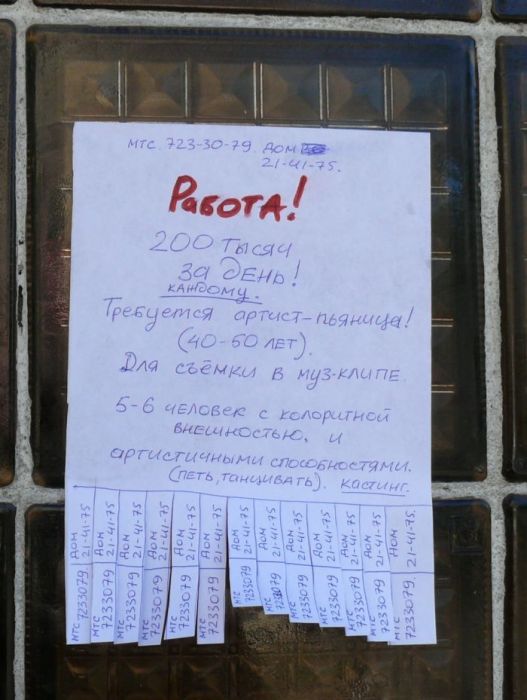 МТС. 723-30-79. ДОМ
21-41-75.
РАБОТА!
200 ТЫСЯЧ
ЗА ДЕНЬ!
КАЖДОМУ.
Требуется артист-пьяница!
(40-50 ЛЕТ).
Для съёмки в муз-клипе.
5-6 человек с колоритной
внешностью. и
артистичными способностями.
(петь, танцивать). кастинг.
МТС 7233079 ДОМ 21-41-75
МТС 7233079 ДОМ 21-41-75
МТС 7233079 ДОМ 21-41-75
МТС 7233079 ДОМ 21-41-75
МТС 7233079 ДОМ 21-41-75
МТС 7233079 ДОМ 21-41-75
МТС 7233079 ДОМ 21-41-75
МТС 7233079 ДОМ 21-41-75
МТС 7233079 ДОМ 21-41-75
МТС 7233079 ДОМ 21-41-75
МТС 7233079 ДОМ 21-41-75
МТС 7233079 ДОМ 21-41-75
МТС 7233079 ДОМ 21-41-75.